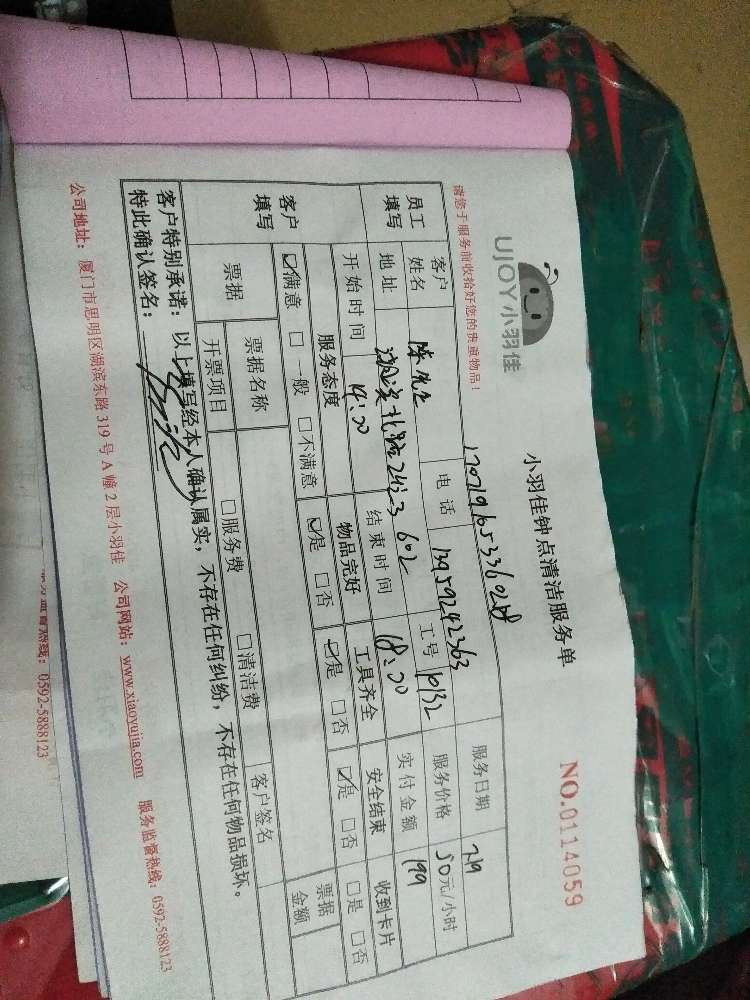 UJOY小羽佳
小羽佳钟点清洁服务单
NO.0114059
请您于服务前收拾好您的贵重物品！
员工填写
客户姓名
陈先生
电话
13959242363
服务日期
7.19
工号
10132
服务价格
50元/小时
地址
602
实付金额
199
开始时间
14:00
结束时间
18:00
客户填写
服务态度
物品完好
工具齐全
安全结束
收到卡片
☑满意 □一般 □不满意
☑是 □否
☑是 □否
☑是 □否
□是 □否
票据
票据名称
客户签名
票据金额
开票项目
□服务费 □清洁费
客户特别承诺：以上填写经本人确认属实，不存在任何纠纷，不存在任何物品损坏。
特此确认签名：
公司地址：厦门市思明区湖滨东路319号A幢2层小羽佳 公司网站：www.xiaoyujia.com 服务监督热线：0592-5888123
热线：0592-5888123